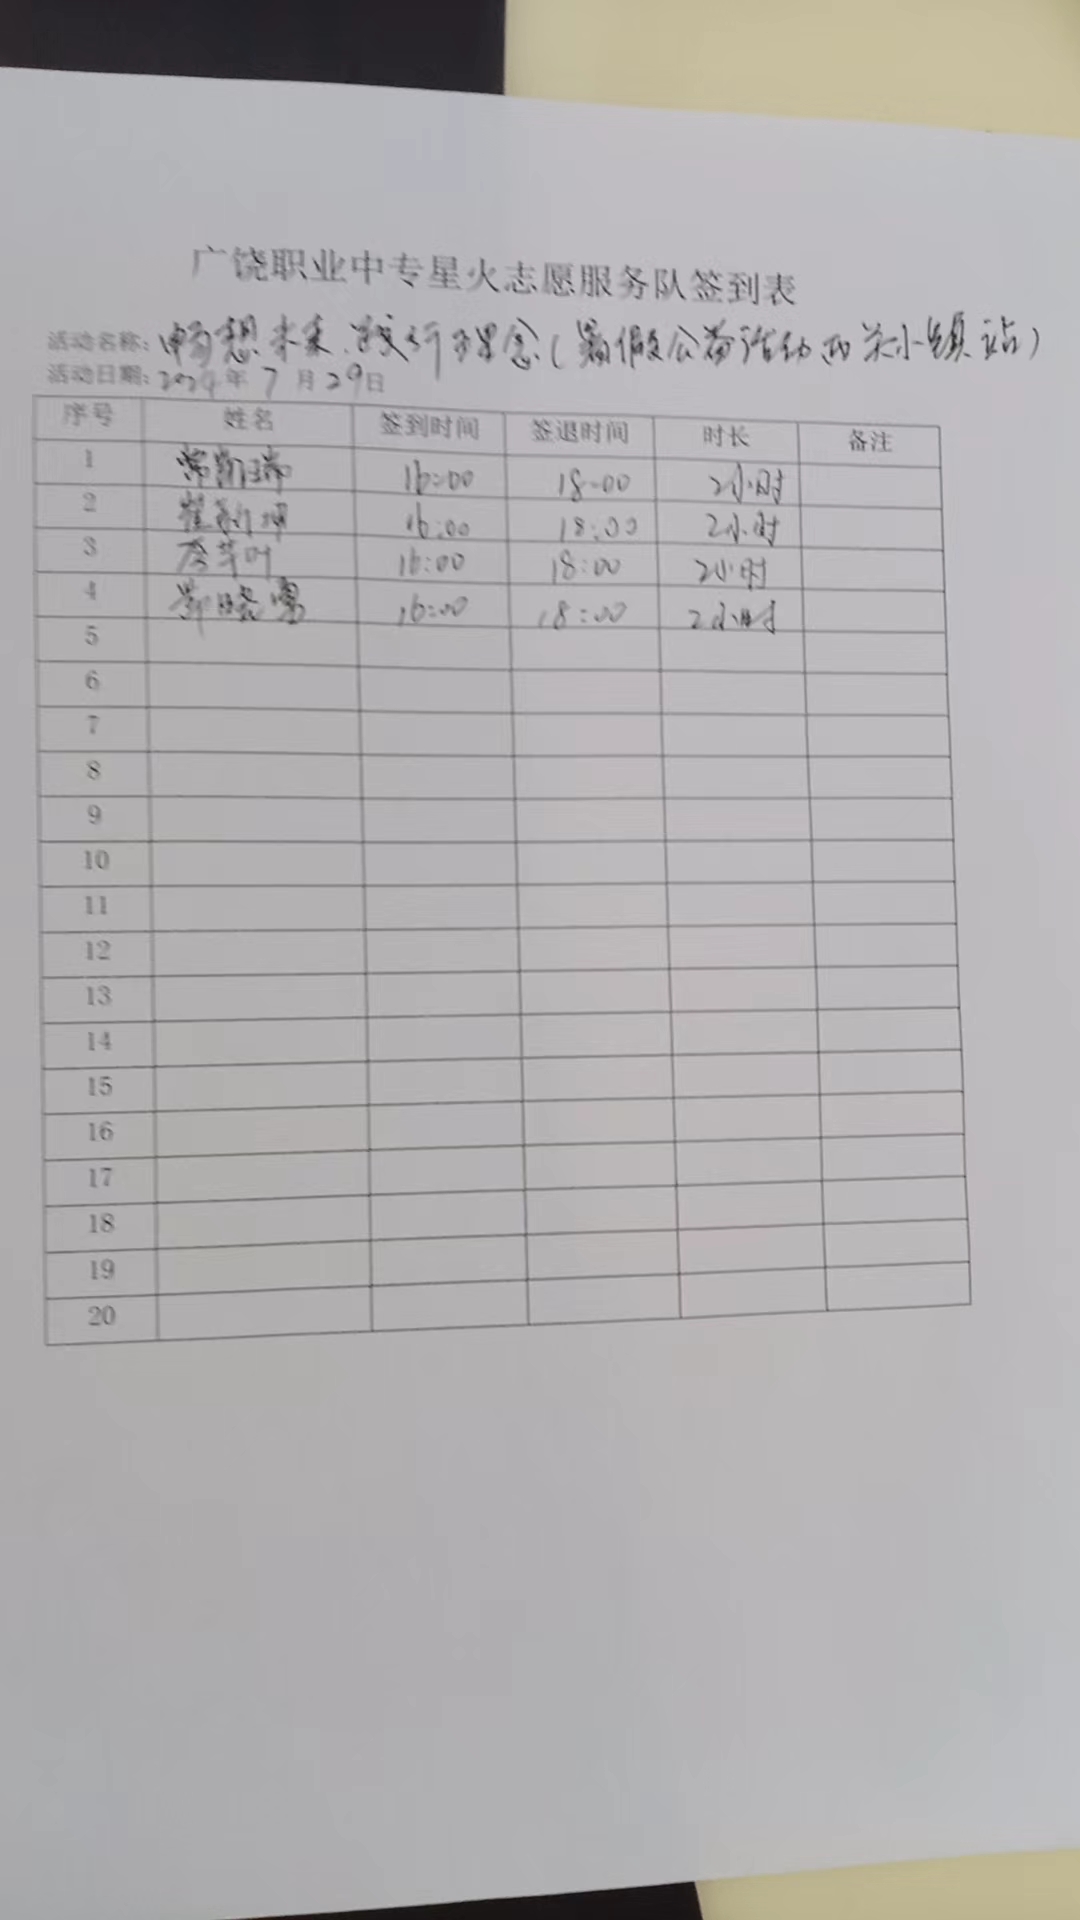 广饶职业中专星火志愿服务队签到表
活动名称：畅想未来、践行理念（暑假公益活动西关小镇站）
活动日期：2024年7月29日
序号 姓名 签到时间 签退时间 时长 备注
1 常凯瑞 16:00 18:00 2小时
2 16:00 18:00 2小时
3 16:00 18:00 2小时
4 16:00 18:00 2小时
5
6
7
8
9
10
11
12
13
14
15
16
17
18
19
20